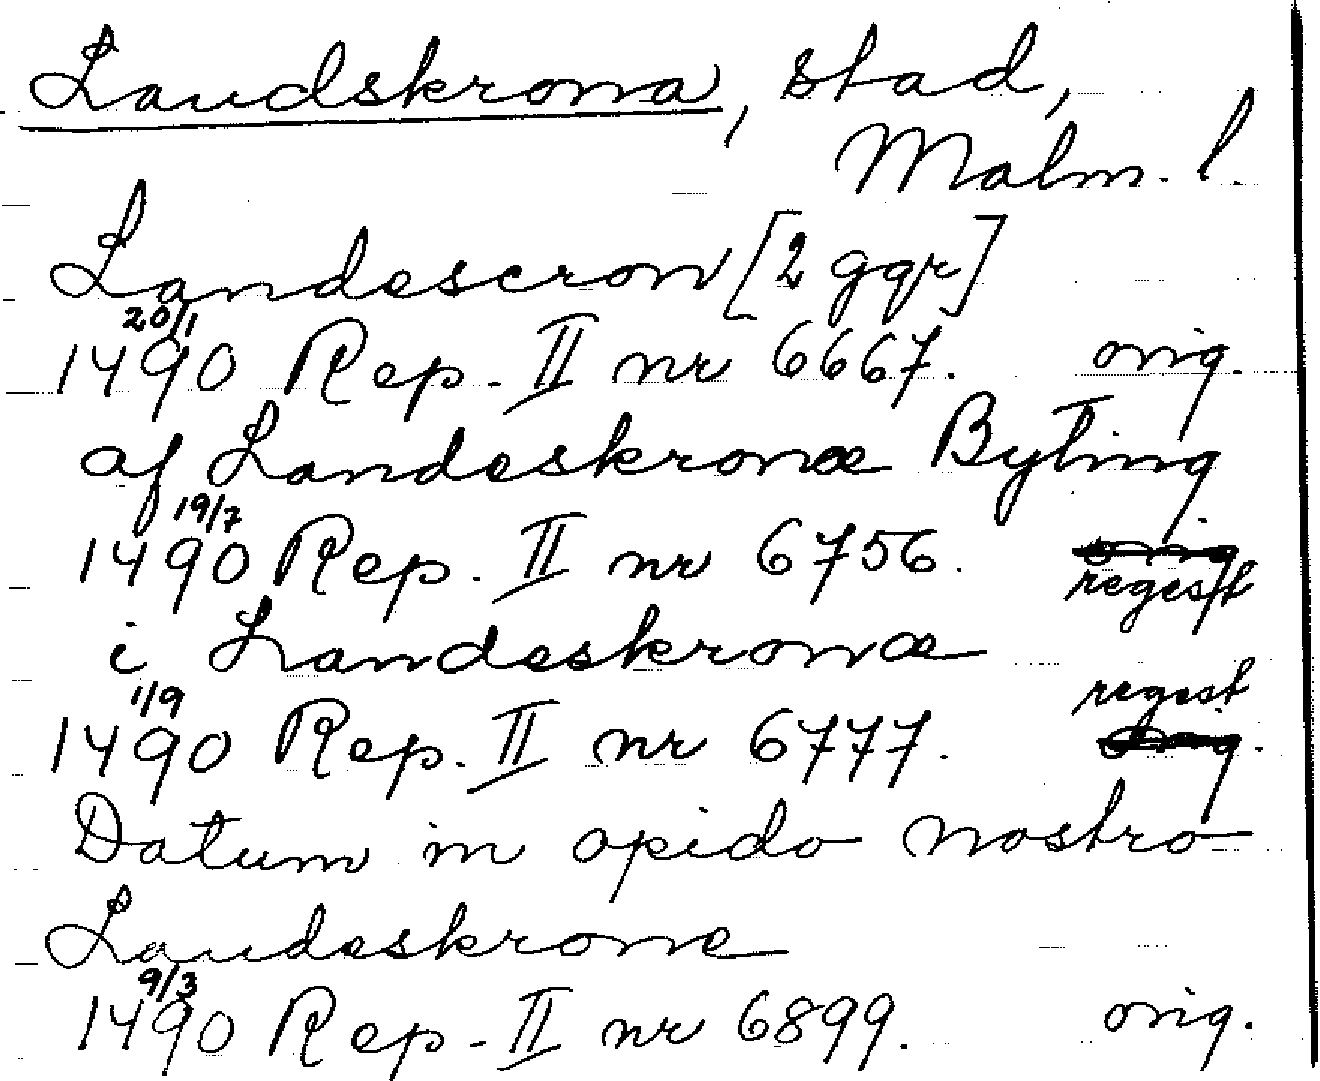 Landskrona, stad,
Malm. l.
Landescron [2 ggr]
20/1
1490 Rep. II nr 6667. orig.
af Landeskronæ Byting
19/7
1490 Rep. II nr 6756. orig.
regest
i Landeskronæ
1/9 regest
1490 Rep. II nr 6777. orig.
Datum in opido nostro
Landeskrone
9/3
1490 Rep. II nr 6899. orig.